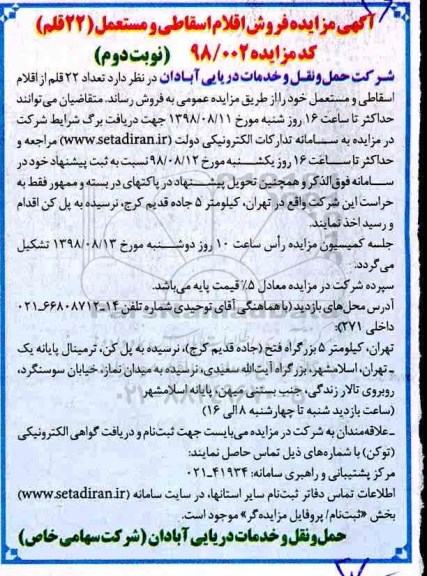 آگهی مزایده فروش اقلام اسقاطی و مستعمل (۲۲ قلم)
کد مزایده ۹۸/۰۰۲ (نوبت دوم)
شرکت حمل و نقل و خدمات دریایی آبادان در نظر دارد تعداد ۲۲ قلم از اقلام
اسقاطی و مستعمل خود را از طریق مزایده عمومی به فروش رساند. متقاضیان می‌توانند
حداکثر تا ساعت ۱۶ روز شنبه مورخ ۱۳۹۸/۰۸/۱۱ جهت دریافت برگ شرایط شرکت
در مزایده به سامانه تدارکات الکترونیکی دولت (www.setadiran.ir) مراجعه و
حداکثر تا ساعت ۱۶ روز یکشنبه مورخ ۹۸/۰۸/۱۲ نسبت به ثبت پیشنهاد خود در
سامانه فوق‌الذکر و همچنین تحویل پیشنهاد در پاکتهای در بسته و ممهور فقط به
حراست این شرکت واقع در تهران، کیلومتر ۵ جاده قدیم کرج، نرسیده به پل کن اقدام
و رسید اخذ نمایند.
جلسه کمیسیون مزایده رأس ساعت ۱۰ روز دوشنبه مورخ ۱۳۹۸/۰۸/۱۳ تشکیل
می‌گردد.
سپرده شرکت در مزایده معادل ۵٪ قیمت پایه می‌باشد.
آدرس محل‌های بازدید (با هماهنگی آقای توحیدی شماره تلفن ۱۴-۶۶۸۰۸۷۱۲-۰۲۱
داخلی ۲۷۱):
تهران، کیلومتر ۵ بزرگراه فتح (جاده قدیم کرج)، نرسیده به پل کن، ترمینال پایانه یک
ـ تهران، اسلامشهر، بزرگراه آیت‌الله سعیدی، نرسیده به میدان نماز، خیابان سوسنگرد،
روبروی تالار زندگی، جنب بستنی میهن، پایانه اسلامشهر
(ساعت بازدید شنبه تا چهارشنبه ۸ الی ۱۶)
ـ علاقه‌مندان به شرکت در مزایده می‌بایست جهت ثبت‌نام و دریافت گواهی الکترونیکی
(توکن) با شماره‌های ذیل تماس حاصل نمایند:
مرکز پشتیبانی و راهبری سامانه: ۴۱۹۳۴-۰۲۱
اطلاعات تماس دفاتر ثبت‌نام سایر استانها، در سایت سامانه (www.setadiran.ir)
بخش «ثبت‌نام/ پروفایل مزایده‌گر» موجود است.
حمل و نقل و خدمات دریایی آبادان (شرکت سهامی خاص)